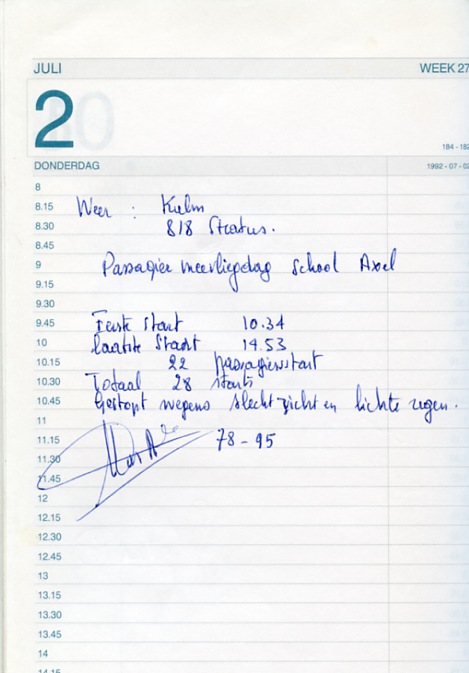 JULI WEEK 27
2
184 - 182
DONDERDAG 1992 - 07 - 02
8
8.15 Weer : Kalm
8.30 8/8 Stratus.
8.45
9 Passagier meevliegdag School Axel
9.15
9.30
9.45 Eerste Start 10.34
10 laatste Start 14.53
10.15 22 passagiersstart
10.30 Totaal 28 starts
10.45 Gestopt wegens slecht zicht en lichte regen.
11
11.15 78 - 95
11.30
11.45
12
12.15
12.30
12.45
13
13.15
13.30
13.45
14
14.15